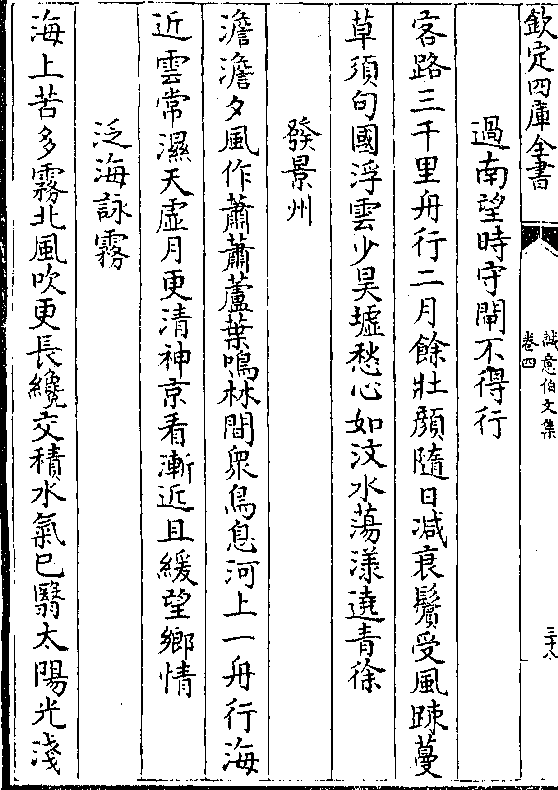 欽定四庫全書
誠意伯文集
卷四
三十八
過南望時守閘不得行
客路三千里舟行二月餘壯顏隨日减衰鬢受風踈蔓
草須句國浮雲少昊墟愁心如汶水蕩漾遶青徐
發景州
澹澹夕風作蕭蕭蘆葉鳴林間衆鳥息河上一舟行海
近雲常濕天虛月更清神京看漸近且緩望鄉情
泛海詠霧
海上苦多霧北風吹更長纔交積水氣已翳太陽光淺